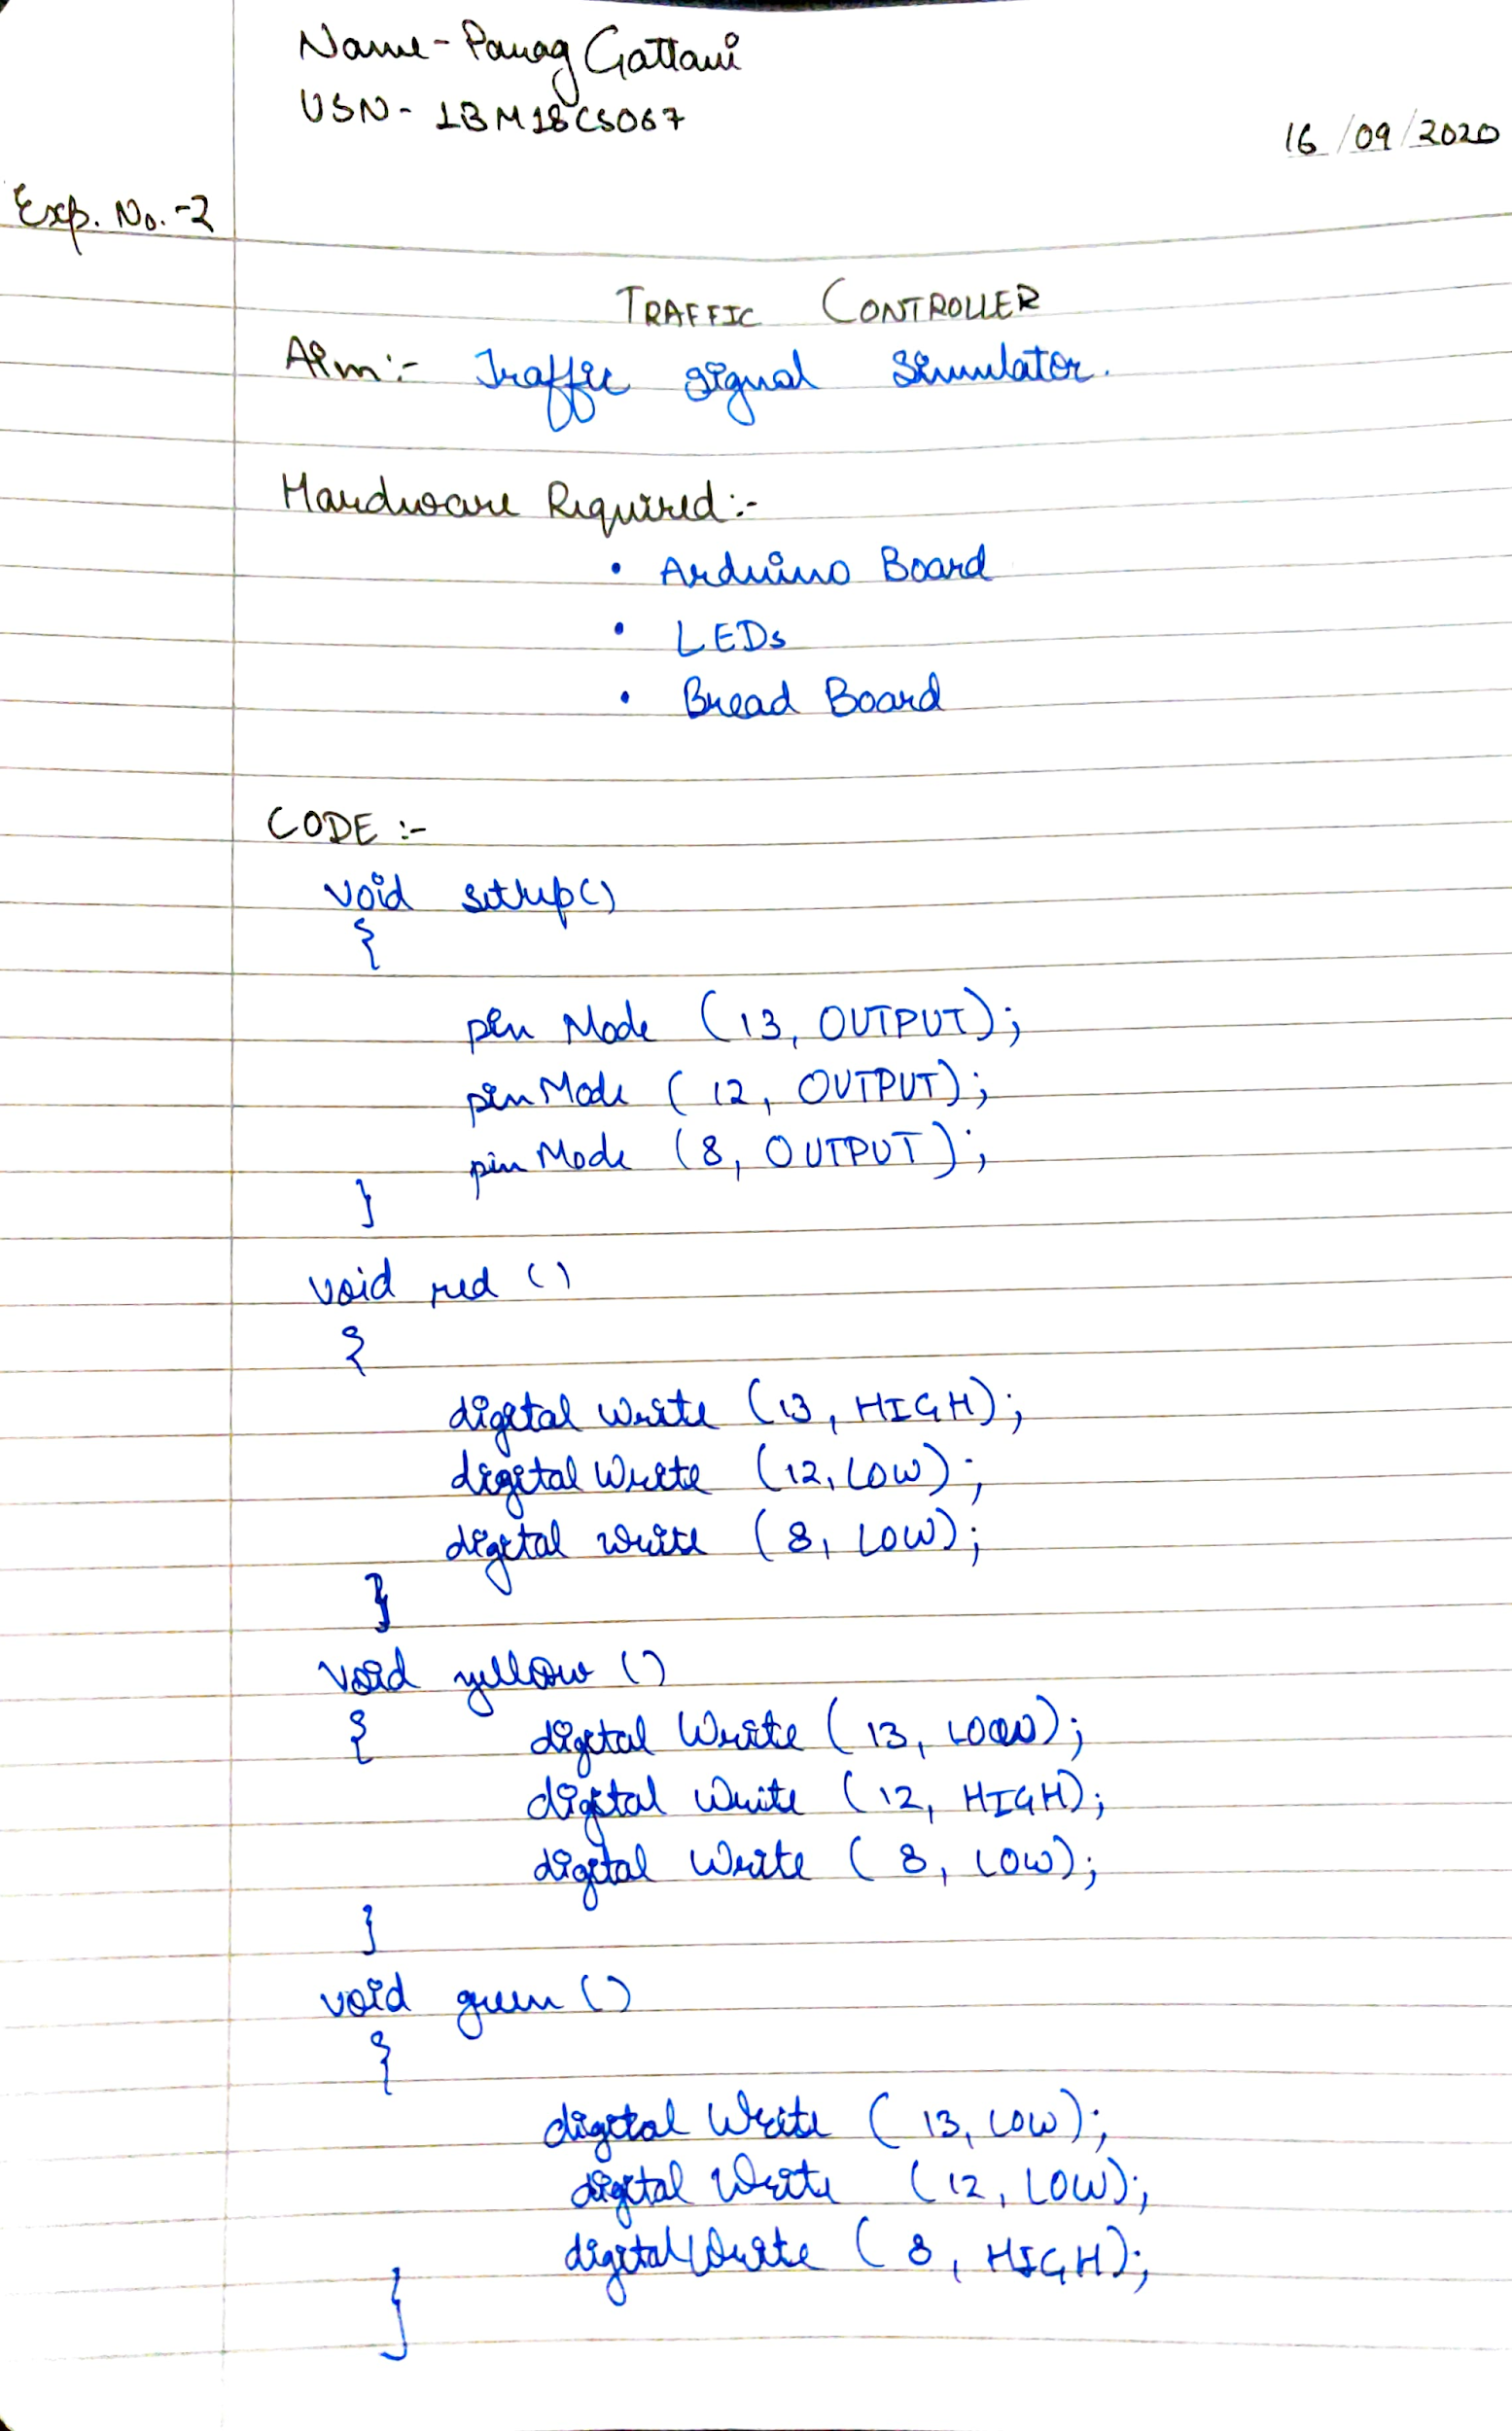 Name - Parag Gattani
USN - 1BM18CS067
16/09/2020
Exp. No. -2
TRAFFIC CONTROLLER
Aim:- Traffic signal Simulator.
Hardware Required:-
• Arduino Board
• LEDs
• Bread Board
CODE :-
void setup()
{
pin Mode (13, OUTPUT);
pinMode (12, OUTPUT);
pin Mode (8, OUTPUT);
}
void red ()
{
digital Write (13, HIGH);
digital Write (12, LOW);
digital write (8, LOW);
}
void yellow ()
{ digital Write (13, LOW);
digital Write (12, HIGH);
digital Write (8, LOW);
}
void green ()
{
digital Write (13, LOW);
digital Write (12, LOW);
digitalWrite (8, HIGH);
}